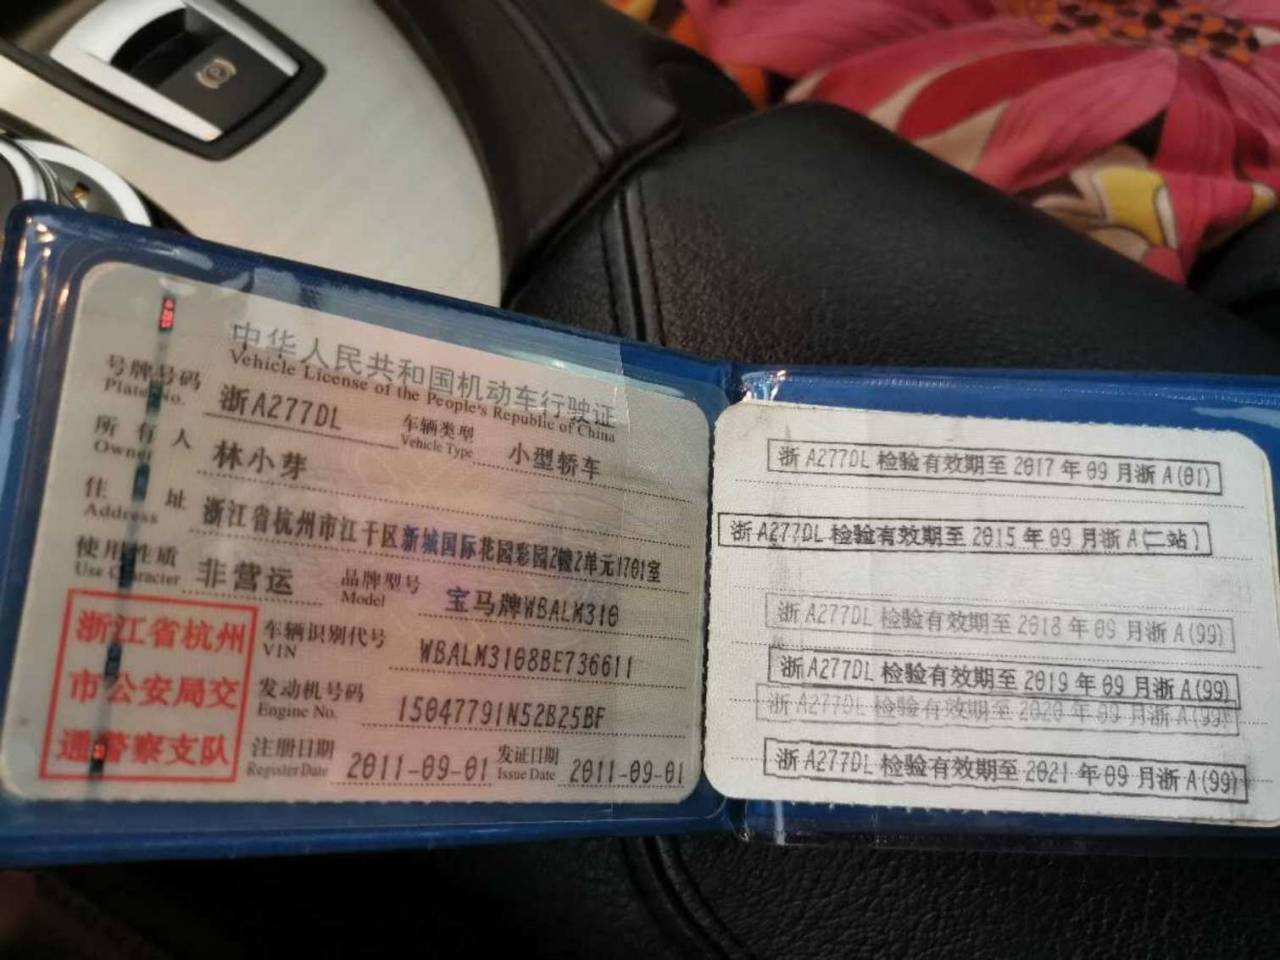 中华人民共和国机动车行驶证
Vehicle License of the People's Republic of China
号牌号码 浙A277DL 车辆类型 小型轿车
Plate No. Vehicle Type
所有人 林小芽
Owner
住址 浙江省杭州市江干区新城国际花园彩园2幢2单元1701室
Address
使用性质 非营运 品牌型号 宝马牌WBALM310
Use Character Model
浙江省杭州
市公安局交
通警察支队
车辆识别代号 WBALM3108BE736611
VIN
发动机号码 15047791N52B25BF
Engine No.
注册日期 2011-09-01 发证日期 2011-09-01
Register Date Issue Date
浙A277DL检验有效期至2017年09月浙A(01)
浙A277DL检验有效期至2015年09月浙A(二站)
浙A277DL检验有效期至2018年09月浙A(99)
浙A277DL检验有效期至2019年09月浙A(99)
浙A277DL检验有效期至2020年09月浙A(99)
浙A277DL检验有效期至2021年09月浙A(99)